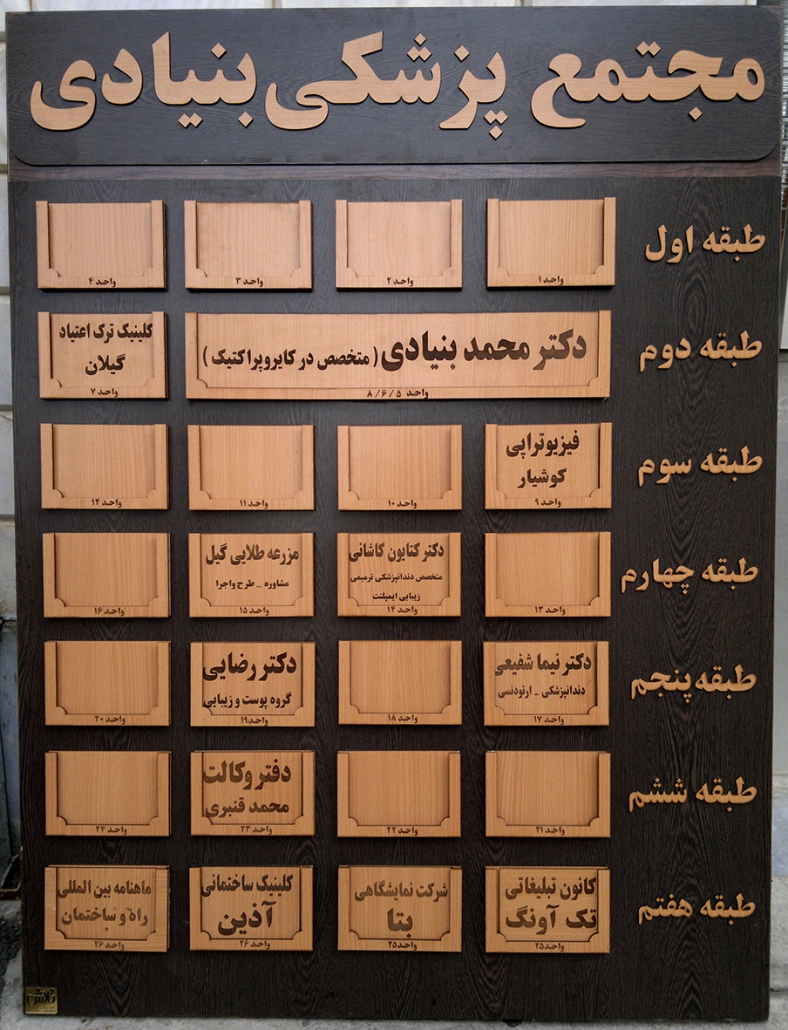 مجتمع پزشکی بنیادی
طبقه اول
واحد ۱
واحد ۲
واحد ۳
واحد ۴
طبقه دوم
دکتر محمد بنیادی ( متخصص در کایروپراکتیک )
واحد ۵ / ۶ / ۸
کلینیک ترک اعتیاد
گیلان
واحد ۷
طبقه سوم
فیزیوتراپی
کوشیار
واحد ۹
واحد ۱۰
واحد ۱۱
واحد ۱۲
طبقه چهارم
واحد ۱۳
دکتر کتایون کاشانی
متخصص دندانپزشکی ترمیمی
زیبایی ایمپلنت
واحد ۱۴
مزرعه طلایی گیل
مشاوره _ طرح واجرا
واحد ۱۵
واحد ۱۶
طبقه پنجم
دکتر نیما شفیعی
دندانپزشکی _ ارتودنسی
واحد ۱۷
واحد ۱۸
دکتر رضایی
گروه پوست و زیبایی
واحد ۱۹
واحد ۲۰
طبقه ششم
واحد ۲۱
واحد ۲۲
دفتر وکالت
محمد قنبری
واحد ۲۳
واحد ۲۴
طبقه هفتم
کانون تبلیغاتی
تک آونگ
واحد ۲۵
شرکت نمایشگاهی
بتا
واحد ۲۵
کلینیک ساختمانی
آذین
واحد ۲۶
ماهنامه بین المللی
راه و ساختمان
واحد ۲۶